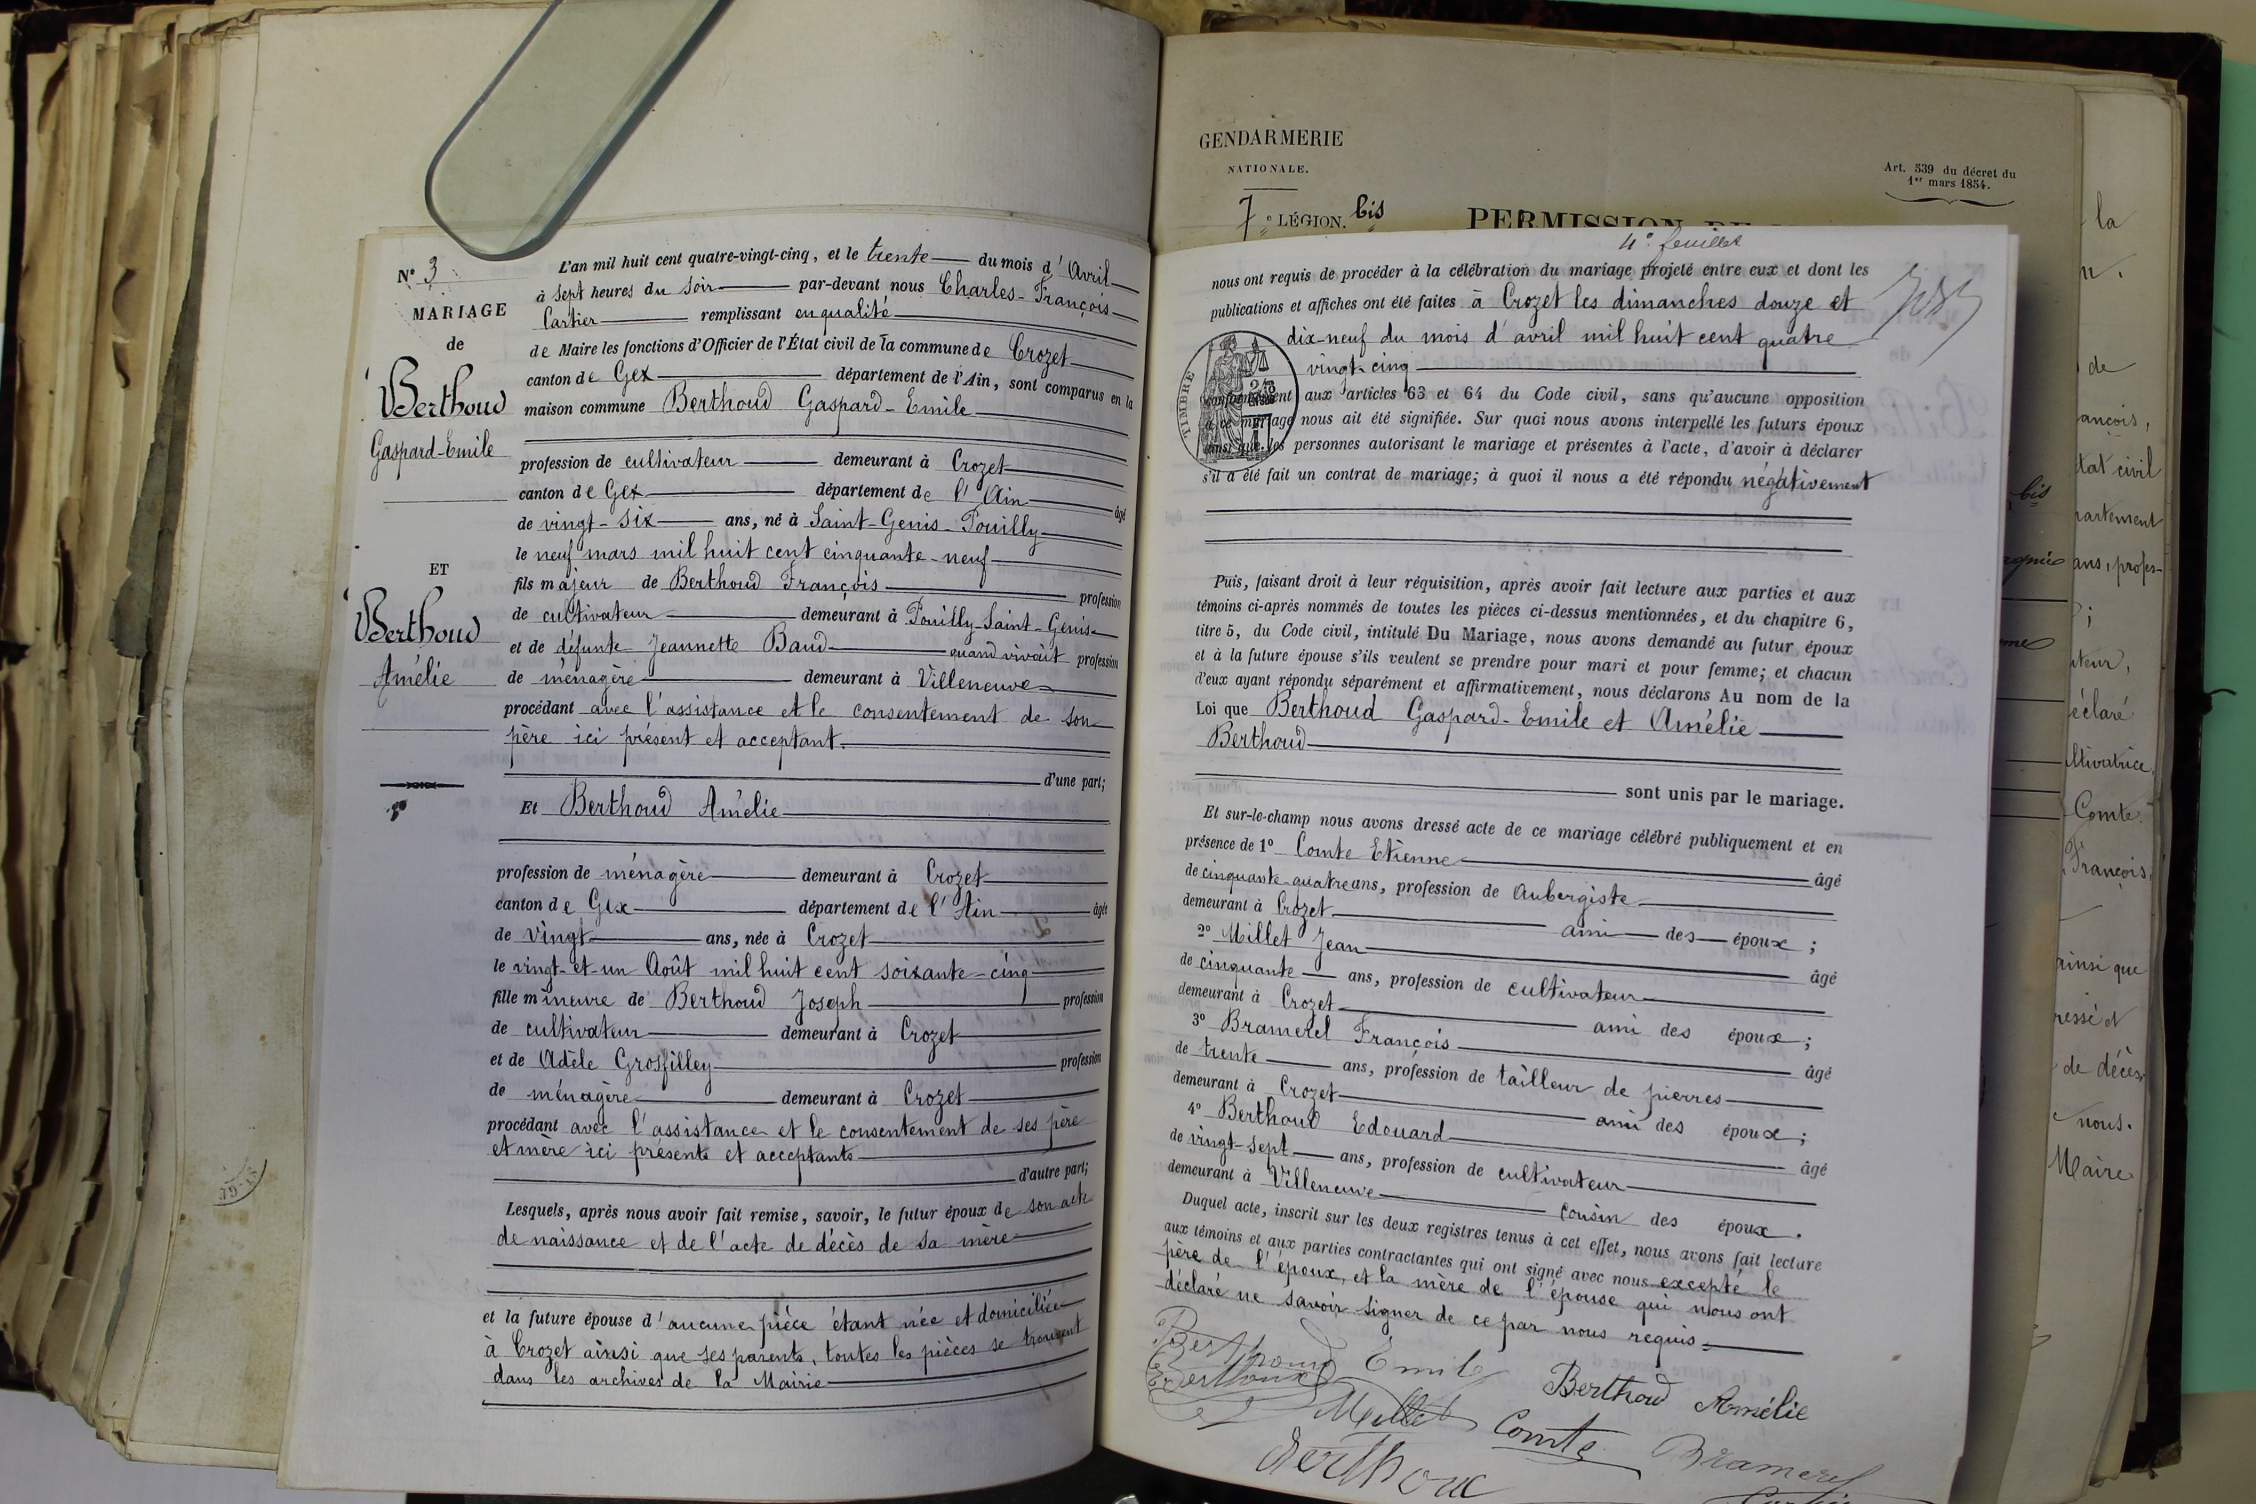 N° 3
MARIAGE
de
Berthoud
Gaspard-Emile
ET
Berthoud
Amélie
L'an mil huit cent quatre-vingt-cinq, et le trente du mois d'Avril
à sept heures du soir par-devant nous Charles-François
Cartier remplissant en qualité
de Maire les fonctions d'Officier de l'État civil de la commune de Crozet
canton de Gex département de l'Ain, sont comparus en la
maison commune Berthoud Gaspard-Emile
profession de cultivateur demeurant à Crozet
canton de Gex département de l'Ain âgé
de vingt-six ans, né à Saint-Genis-Pouilly
le neuf mars mil huit cent cinquante-neuf
fils majeur de Berthoud François profession
de cultivateur demeurant à Pouilly-Saint-Genis
et de défunte Jeannette Baud quand vivait profession
de ménagère demeurant à Villeneuve
procédant avec l'assistance et le consentement de son
père ici présent et acceptant.
d'une part;
Et Berthoud Amélie
profession de ménagère demeurant à Crozet
canton de Gex département de l'Ain âgée
de vingt ans, née à Crozet
le vingt-et-un Août mil huit cent soixante-cinq
fille mineure de Berthoud Joseph profession
de cultivateur demeurant à Crozet
et de Adèle Grosfilley profession
de ménagère demeurant à Crozet
procédant avec l'assistance et le consentement de ses père
et mère ici présents et acceptants
d'autre part;
Lesquels, après nous avoir fait remise, savoir, le futur époux de son acte
de naissance et de l'acte de décès de sa mère
et la future épouse d'aucune pièce étant née et domiciliée
à Crozet ainsi que ses parents, toutes les pièces se trouvent
dans les archives de la Mairie
GENDARMERIE
NATIONALE.
7e LÉGION. bis
Art. 539 du décret du
1er mars 1854.
PERMISSION DE
4e feuillet
nous ont requis de procéder à la célébration du mariage projeté entre eux et dont les
publications et affiches ont été faites à Crozet les dimanches douze et
dix-neuf du mois d'avril mil huit cent quatre
vingt-cinq
TIMBRE
conformément aux articles 63 et 64 du Code civil, sans qu'aucune opposition
à ce mariage nous ait été signifiée. Sur quoi nous avons interpellé les futurs époux
ainsi que les personnes autorisant le mariage et présentes à l'acte, d'avoir à déclarer
s'il a été fait un contrat de mariage; à quoi il nous a été répondu négativement
Puis, faisant droit à leur réquisition, après avoir fait lecture aux parties et aux
témoins ci-après nommés de toutes les pièces ci-dessus mentionnées, et du chapitre 6,
titre 5, du Code civil, intitulé Du Mariage, nous avons demandé au futur époux
et à la future épouse s'ils veulent se prendre pour mari et pour femme; et chacun
d'eux ayant répondu séparément et affirmativement, nous déclarons Au nom de la
Loi que Berthoud Gaspard-Emile et Amélie
Berthoud
sont unis par le mariage.
Et sur-le-champ nous avons dressé acte de ce mariage célébré publiquement et en
présence de 1° Comte Etienne âgé
de cinquante-quatre ans, profession de Aubergiste
demeurant à Crozet ami des époux;
2° Millet Jean âgé
de cinquante ans, profession de cultivateur
demeurant à Crozet ami des époux;
3° Bramerel François âgé
de trente ans, profession de tailleur de pierres
demeurant à Crozet ami des époux;
4° Berthoud Edouard âgé
de vingt-sept ans, profession de cultivateur
demeurant à Villeneuve cousin des époux.
Duquel acte, inscrit sur les deux registres tenus à cet effet, nous avons fait lecture
aux témoins et aux parties contractantes qui ont signé avec nous excepté le
père de l'époux, et la mère de l'épouse qui nous ont
déclaré ne savoir signer de ce par nous requis.
Berthoud Emile Berthoud Amélie
Berthoud Millet Comte Bramerel
Berthoud
la
de
ançois,
tat civil
bis
partement
ans, profes-
teur,
éclaré
ltivatrice,
Comte
François,
ainsi que
ressé et
de décès,
nous.
Maire